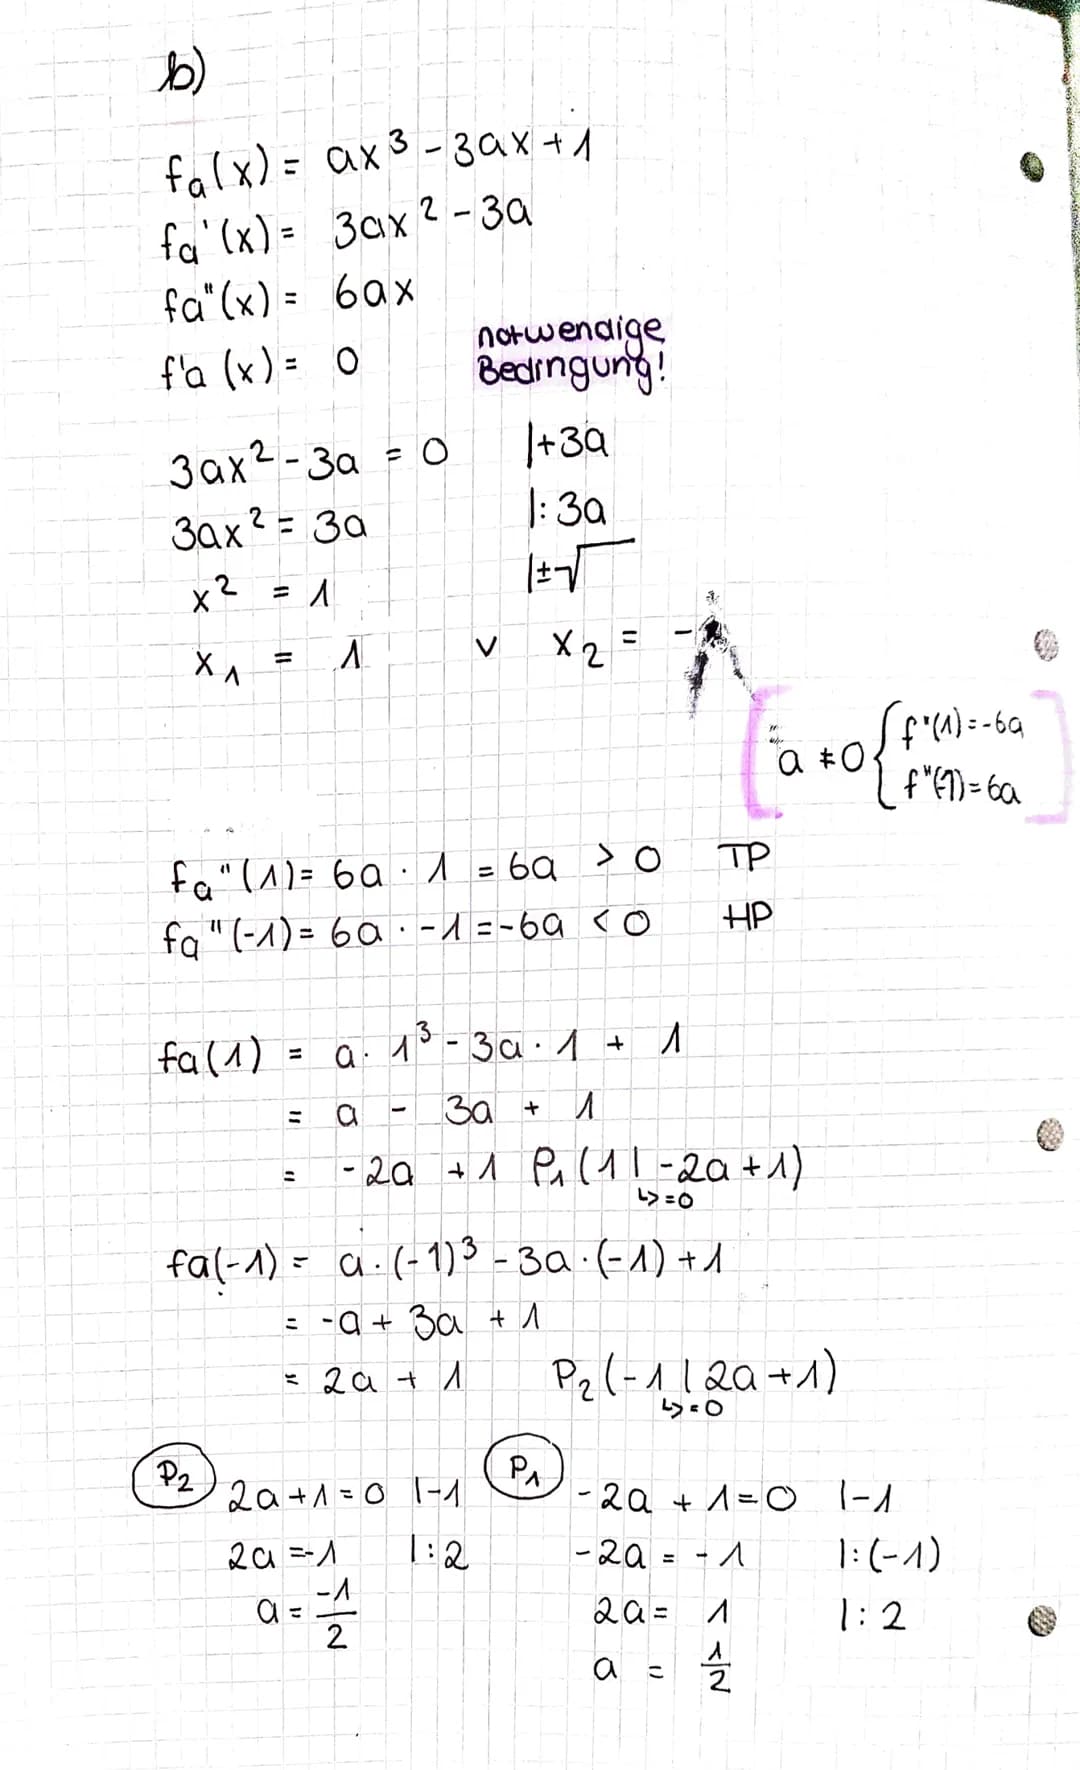 b)
fa(x) = ax³ - 3ax + 1
fa'(x) = 3ax² - 3a
fa"(x) = 6ax
f'a (x) = 0 notwendige Bedingung!
3ax² - 3a = 0 |+3a
3ax² = 3a |: 3a
x² = 1 |±√
x₁ = 1 v x₂ = -1
[a ≠ 0 { f"(1) = -6a
f"(-1) = 6a ]
fa"(1) = 6a · 1 = 6a > 0 TP
fa"(-1) = 6a · -1 = -6a < 0 HP
fa(1) = a · 1³ - 3a · 1 + 1
= a - 3a + 1
= -2a + 1 P₁(1 | -2a + 1)
↳ = 0
fa(-1) = a · (-1)³ - 3a · (-1) + 1
= -a + 3a + 1
= 2a + 1 P₂(-1 | 2a + 1)
↳ = 0
P₂ 2a + 1 = 0 |-1
2a = -1 |: 2
a = -1/2
P₁ -2a + 1 = 0 |-1
-2a = -1 |: (-1)
2a = 1 |: 2
a = 1/2